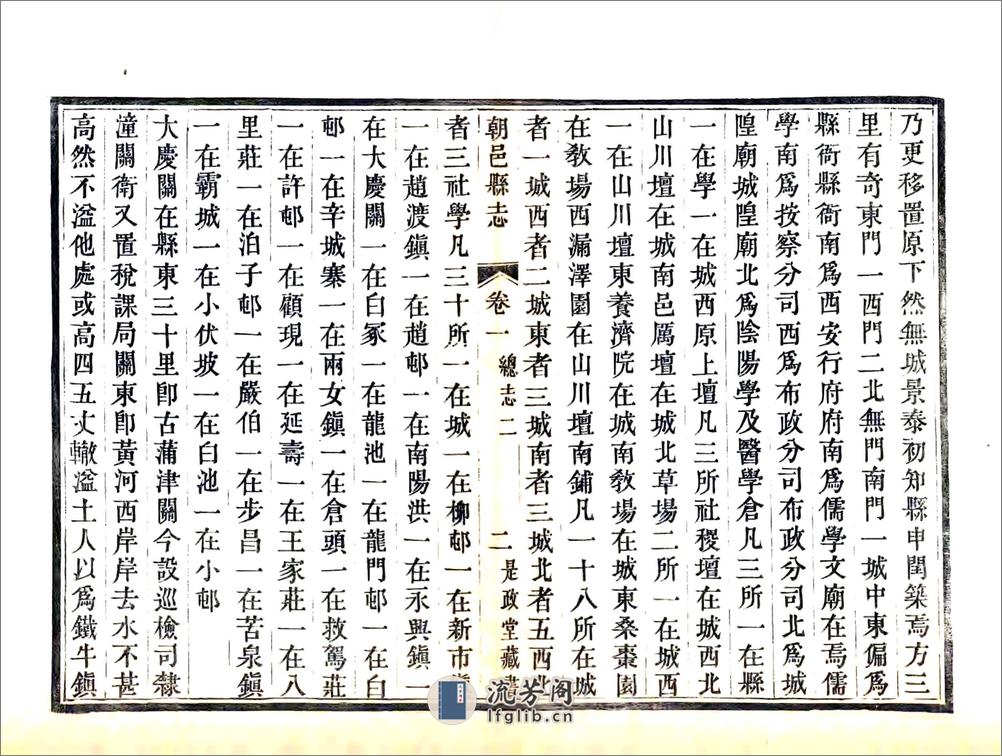 乃更移置原下然無城景泰初知縣申閏築焉方三
里有奇東門一西門二北無門南門一城中東偏爲
縣衙縣衙南爲西安行府府南爲儒學文廟在焉儒
學南爲按察分司西爲布政分司布政分司北爲城
隍廟城隍廟北爲陰陽學及醫學倉凡三所一在縣
一在學一在城西原上壇凡三所社稷壇在城西北
山川壇在城南邑厲壇在城北草場二所一在城西
一在山川壇東養濟院在城南敎場在城東桑棗園
在敎場西漏澤園在山川壇南鋪凡一十八所在城
者一城西者二城東者三城南者三城北者五西北
朝邑縣志 卷一 總志二 二 是政堂藏書
者三社學凡三十所一在城一在柳邨一在新市鎮
一在趙渡鎭一在趙邨一在南陽洪一在永興鎭一
在大慶關一在白冢一在龍池一在龍門邨一在白
邨一在辛城寨一在兩女鎭一在倉頭一在救駕莊
一在許邨一在顧現一在延壽一在王家莊一在八
里莊一在泊子邨一在嚴伯一在步昌一在苦泉鎭
一在霸城一在小伏坡一在白池一在小邨
大慶關在縣東三十里卽古蒲津關今設巡檢司隸
潼關衛又置稅課局關東卽黃河西岸岸去水不甚
高然不溢他處或高四五丈輒溢土人以爲鐵牛鎭
流芳阁
lfglib.cn